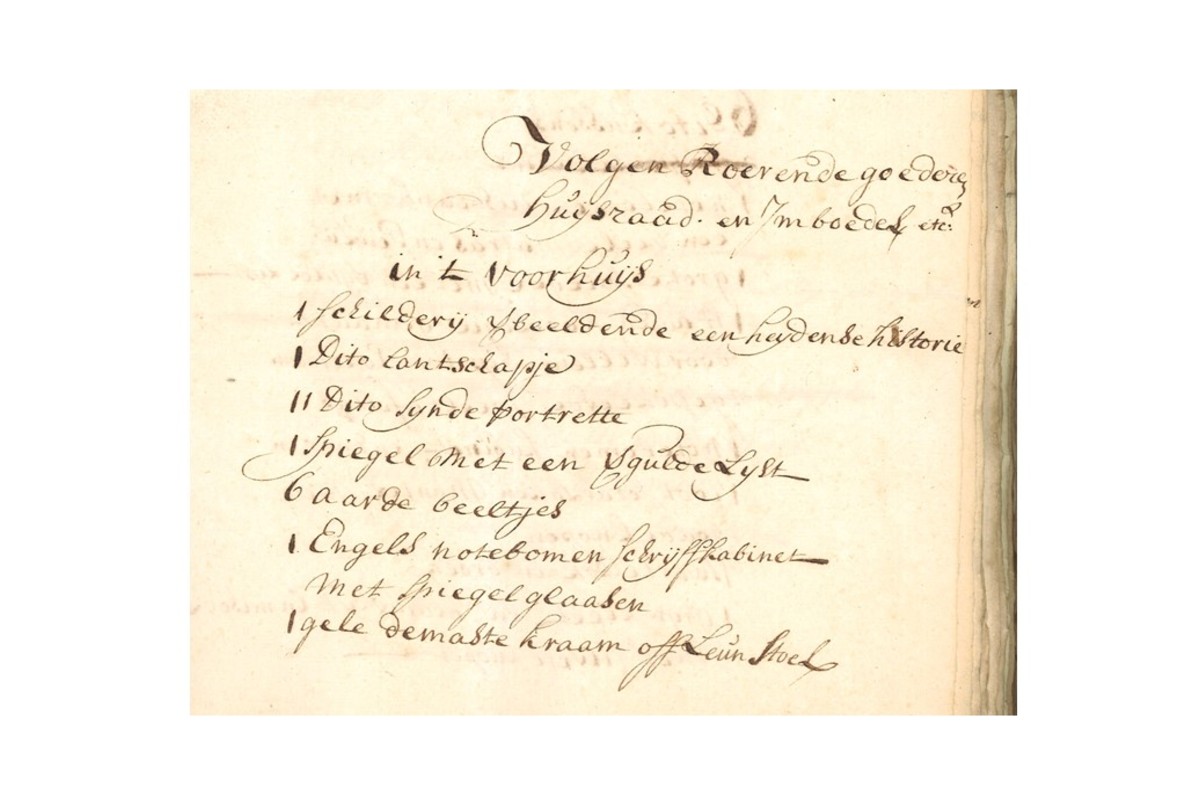 Volgen Roerende goederen
Huijsraad. en Imboedel etc:
in 't voorhuijs
1 schilderij Vbeeldende een heydense historie
1 Dito Lantschapje
11 Dito synde portrette
1 spiegel met een Vgulde Lyst
6 aarde beeltjes
1 Engels notebomen schryffkabinet
met spiegel glaasen
1 gele demaste kraam off Leun stoel